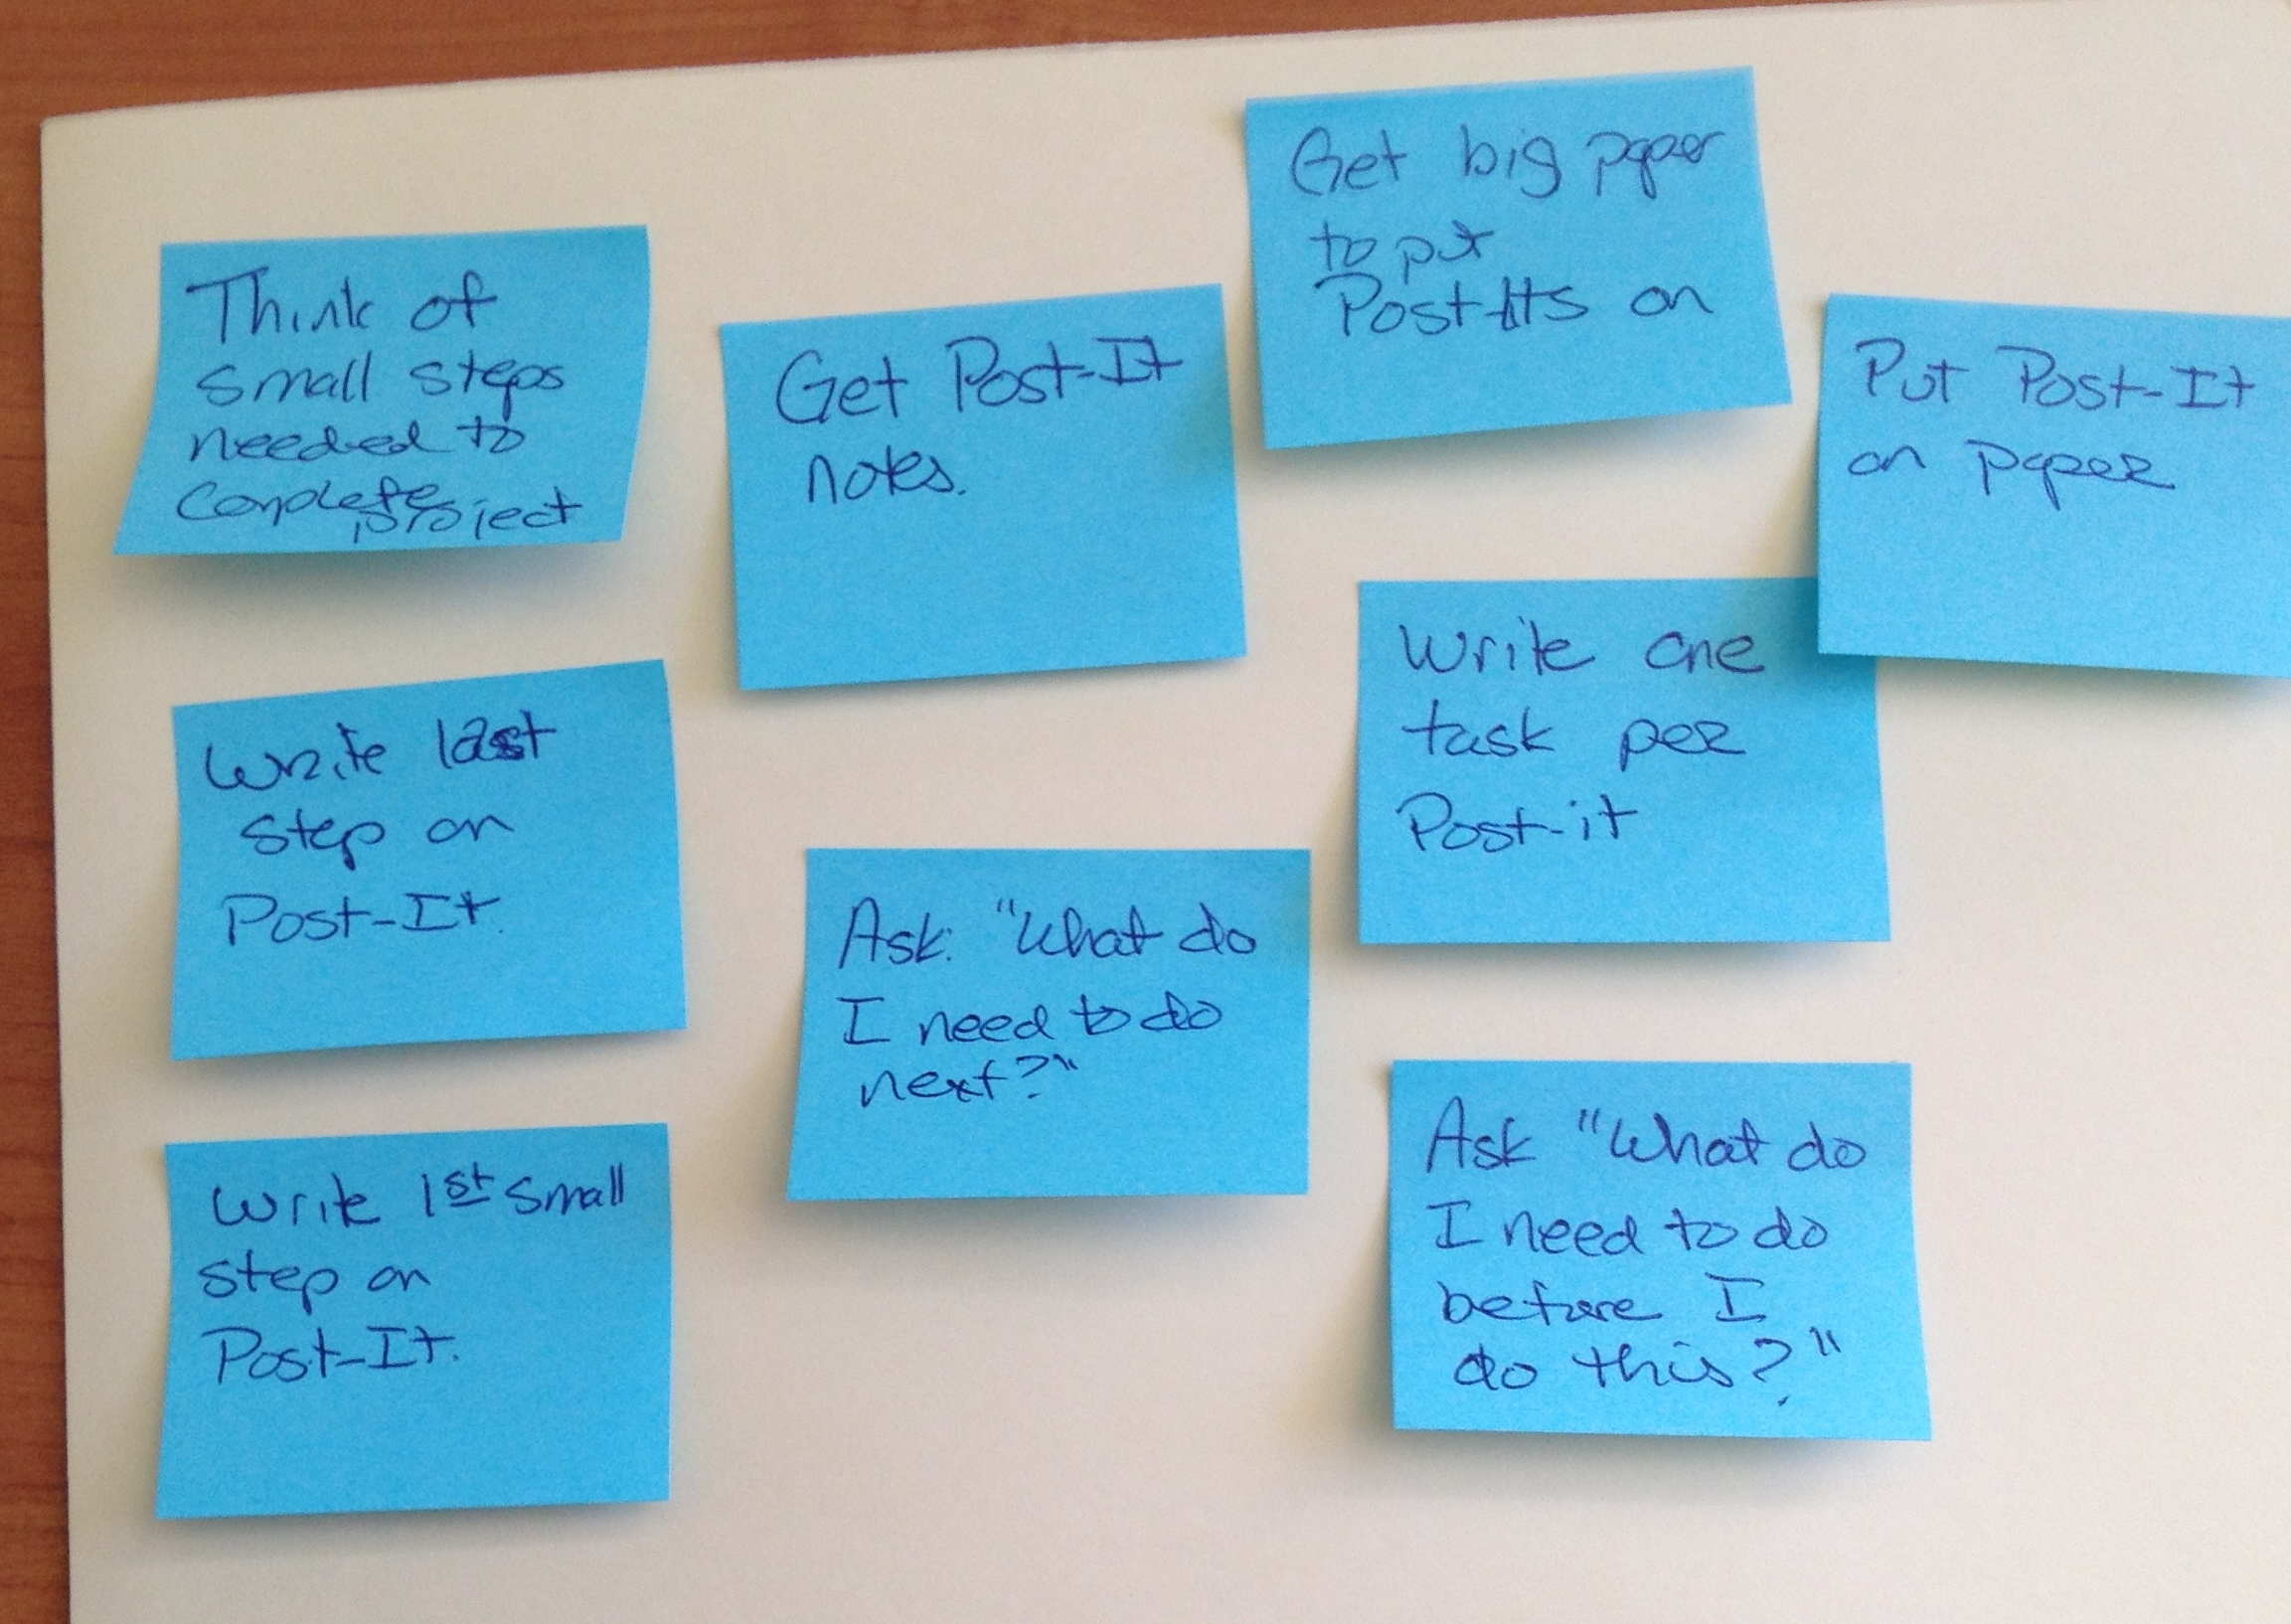 Think of
small steps
needed to
complete
project
Get Post-It
notes.
Get big paper
to put
Post-Its on
Put Post-It
on paper
Write last
step on
Post-It.
Write one
task per
Post-it
Ask: "What do
I need to do
next?"
Write 1st small
step on
Post-It.
Ask "What do
I need to do
before I
do this?"